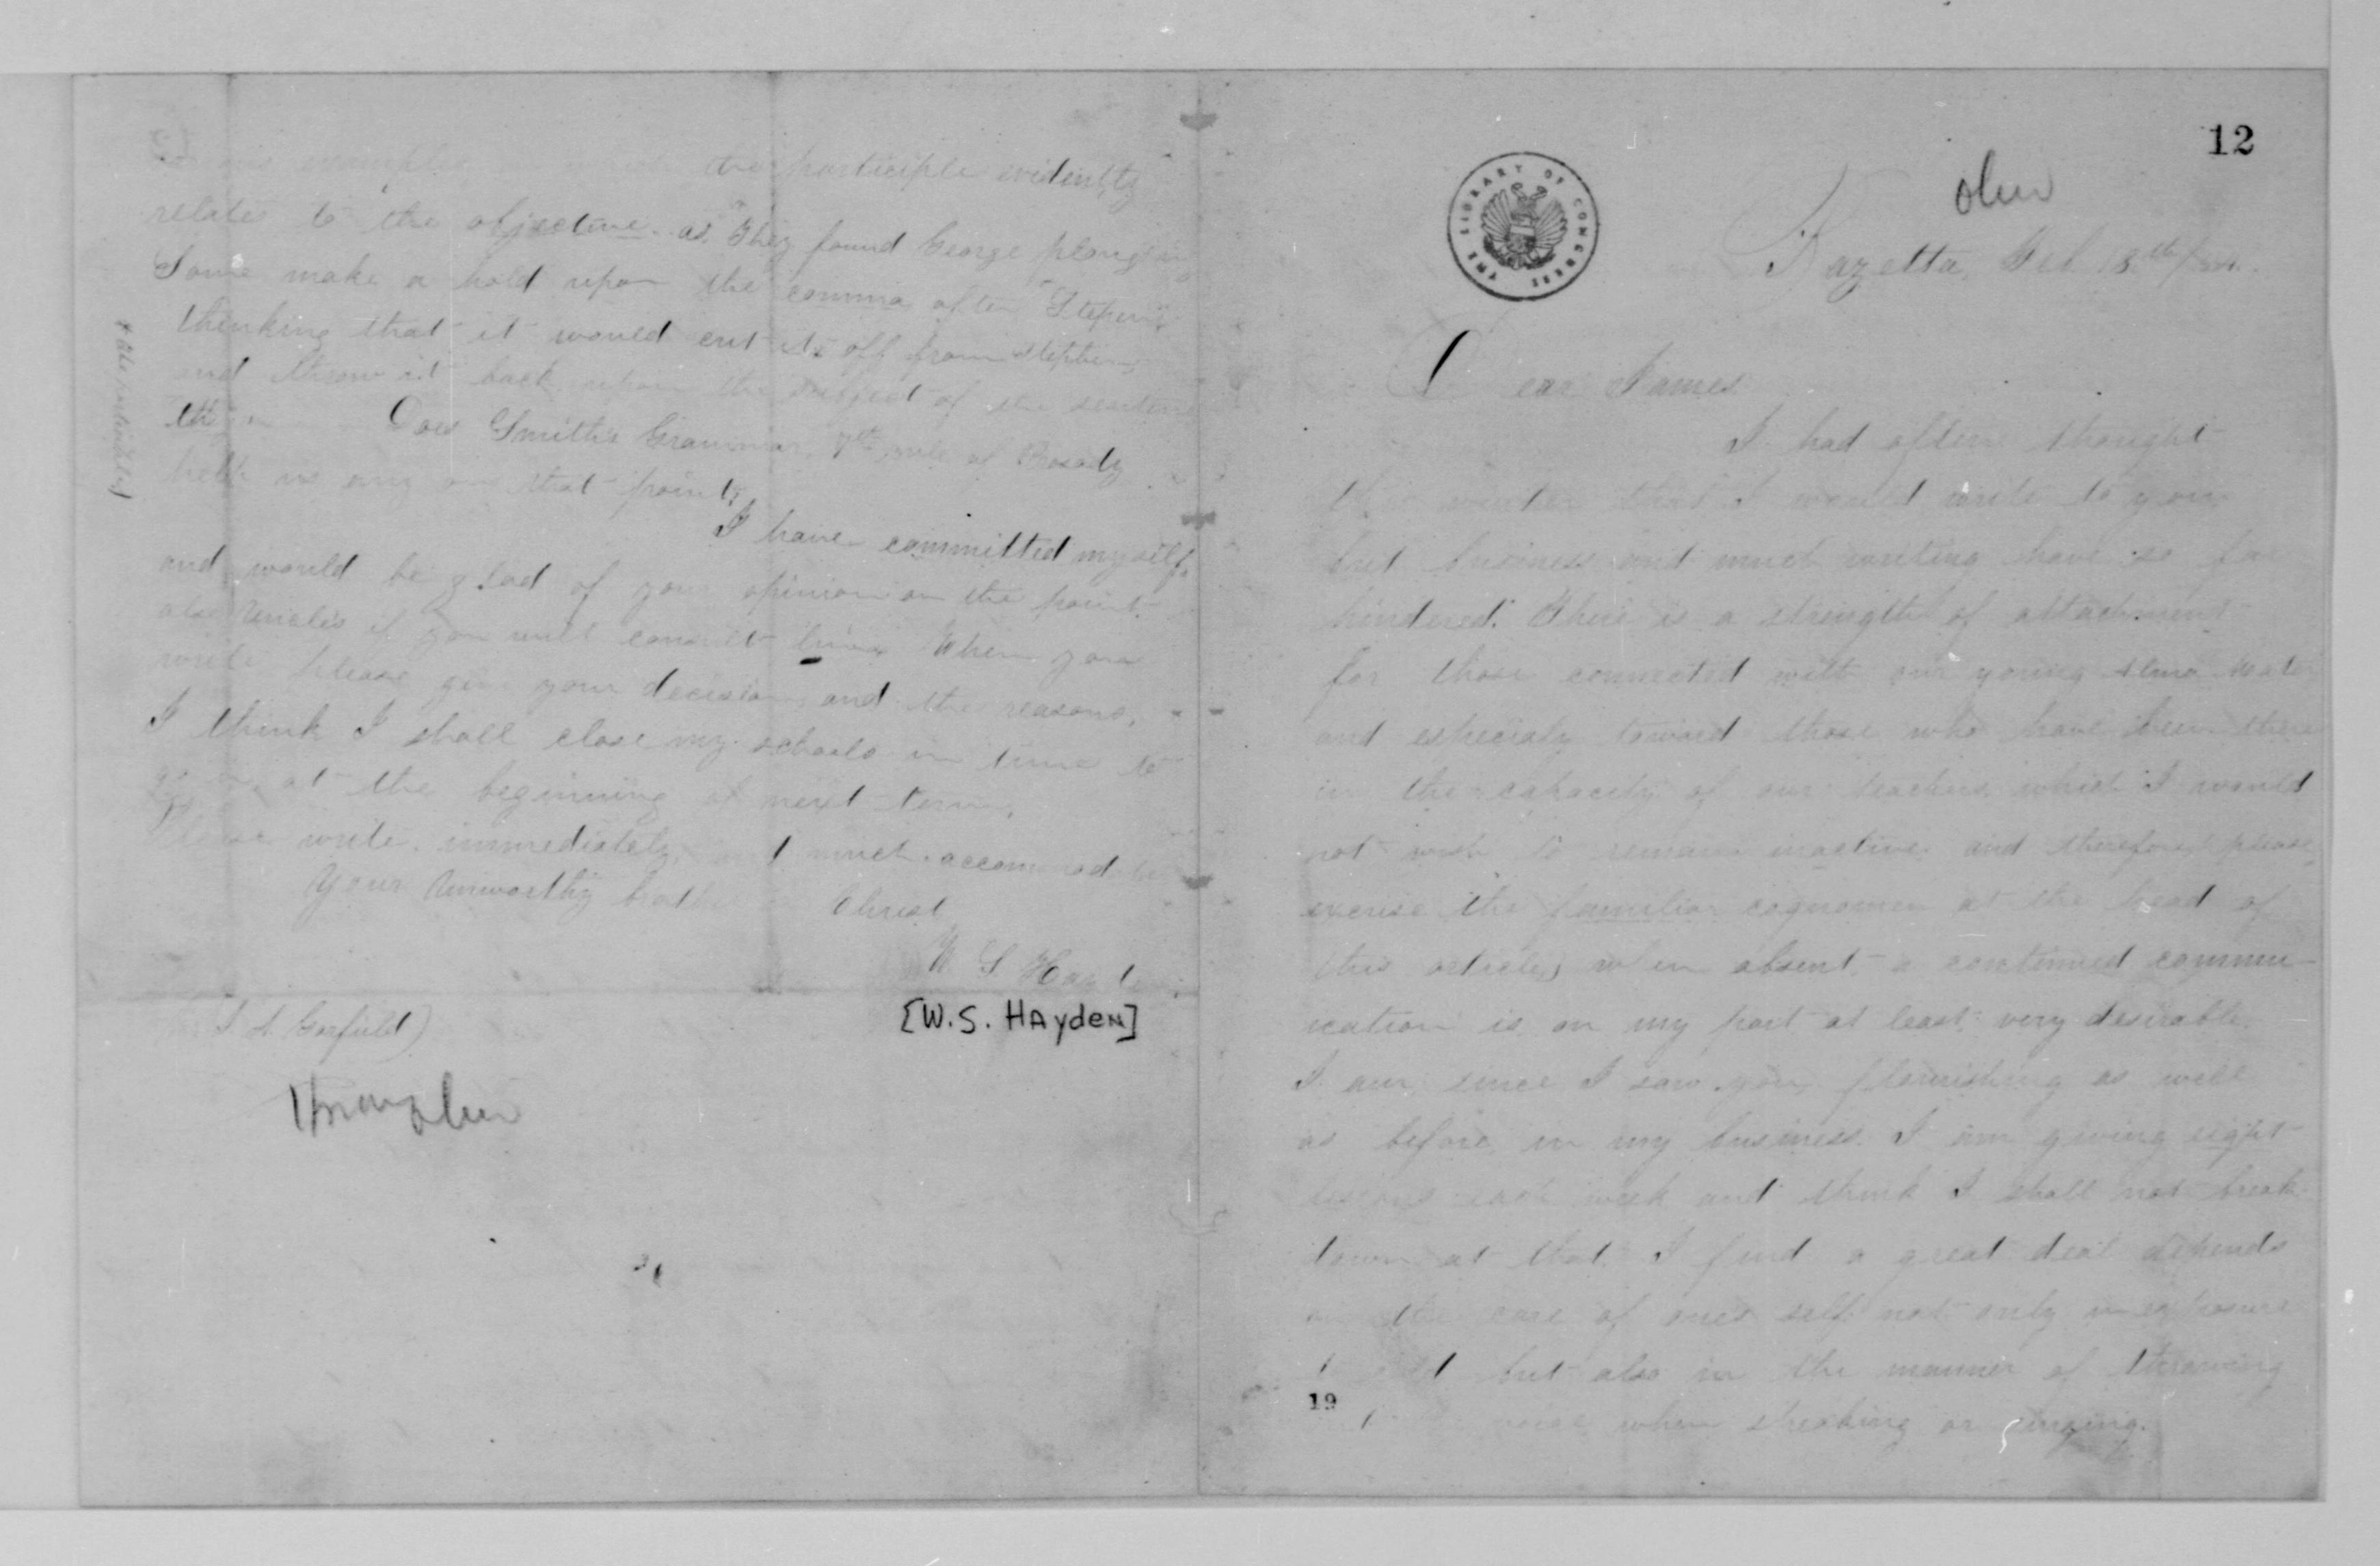 12
Ohio
Bazetta, Feb 18th/
THE LIBRARY OF CONGRESS
Dear James
I had often thought
this winter that I would write to you
but business and much writing have so far
hindered. There is a strength of attachment
for those connected with our young Alma Mater
and especialy toward those who have been there
in the capacity of our teachers which I would
not wish to remain inactive, and therefore, please
excuse the familiar cognomen at the head of
this article, when absent, a continued commu-
nication is on my part at least, very desirable.
I am, since I saw you, flourishing as well
as before in my business. I am giving eight
lessons each week and think I shall not break
down at that. I find a great deal depends
on the care of ones self not only in exposure
but also in the manner of throwing
19
voice when speaking or singing.
examples in which the participle evidently
relates to the objective. as "They found George
Some make a hold upon the comma after
thinking that it would cut it off from
and throw it back upon the subject of the
Does Smith's Grammar, 7th rule of Prosody
help us any on that point?
I have committed myself,
and would be glad of your opinion on the point.
also Uncle's if you will consult him. When you
write please give your decision, and the reasons.
I think I shall close my schools in time to
at the beginning of next term.
Please write immediately, and much accommodate
Your Unworthy brother Christ
W S Hayden
[W.S. HAydeN]
J A Garfield)
Hiram Ohio